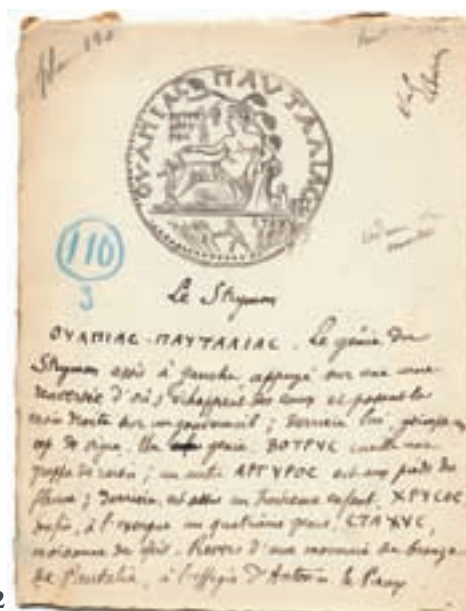 ΟΥΛΠΙΑC ΠΑΥΤΑΛΙΑC
110
3
Le Strymon
ΟΥΛΠΙΑC-ΠΑΥΤΑΛΙΑC. Le génie du
Strymon assis à gauche, appuyé sur une urne
renversée d'où s'échappent les eaux et posant la
main droite sur un gouvernail; derrière lui, grimpe un
cep de vigne. Un génie, ΒΟΤΡΥC cueille une
grappe de raisin; un autre ΑΡΓΥΡΟC est aux pieds du
fleuve; derrière, est assis un troisième enfant, ΧΡΥCΟC
enfin, à l'exergue un quatrième génie, CΤΑΧΥC,
moissonne du blé. Revers d'une monnaie de bronze
de Pautalia, à l'effigie d'Antonin le Pieux
2